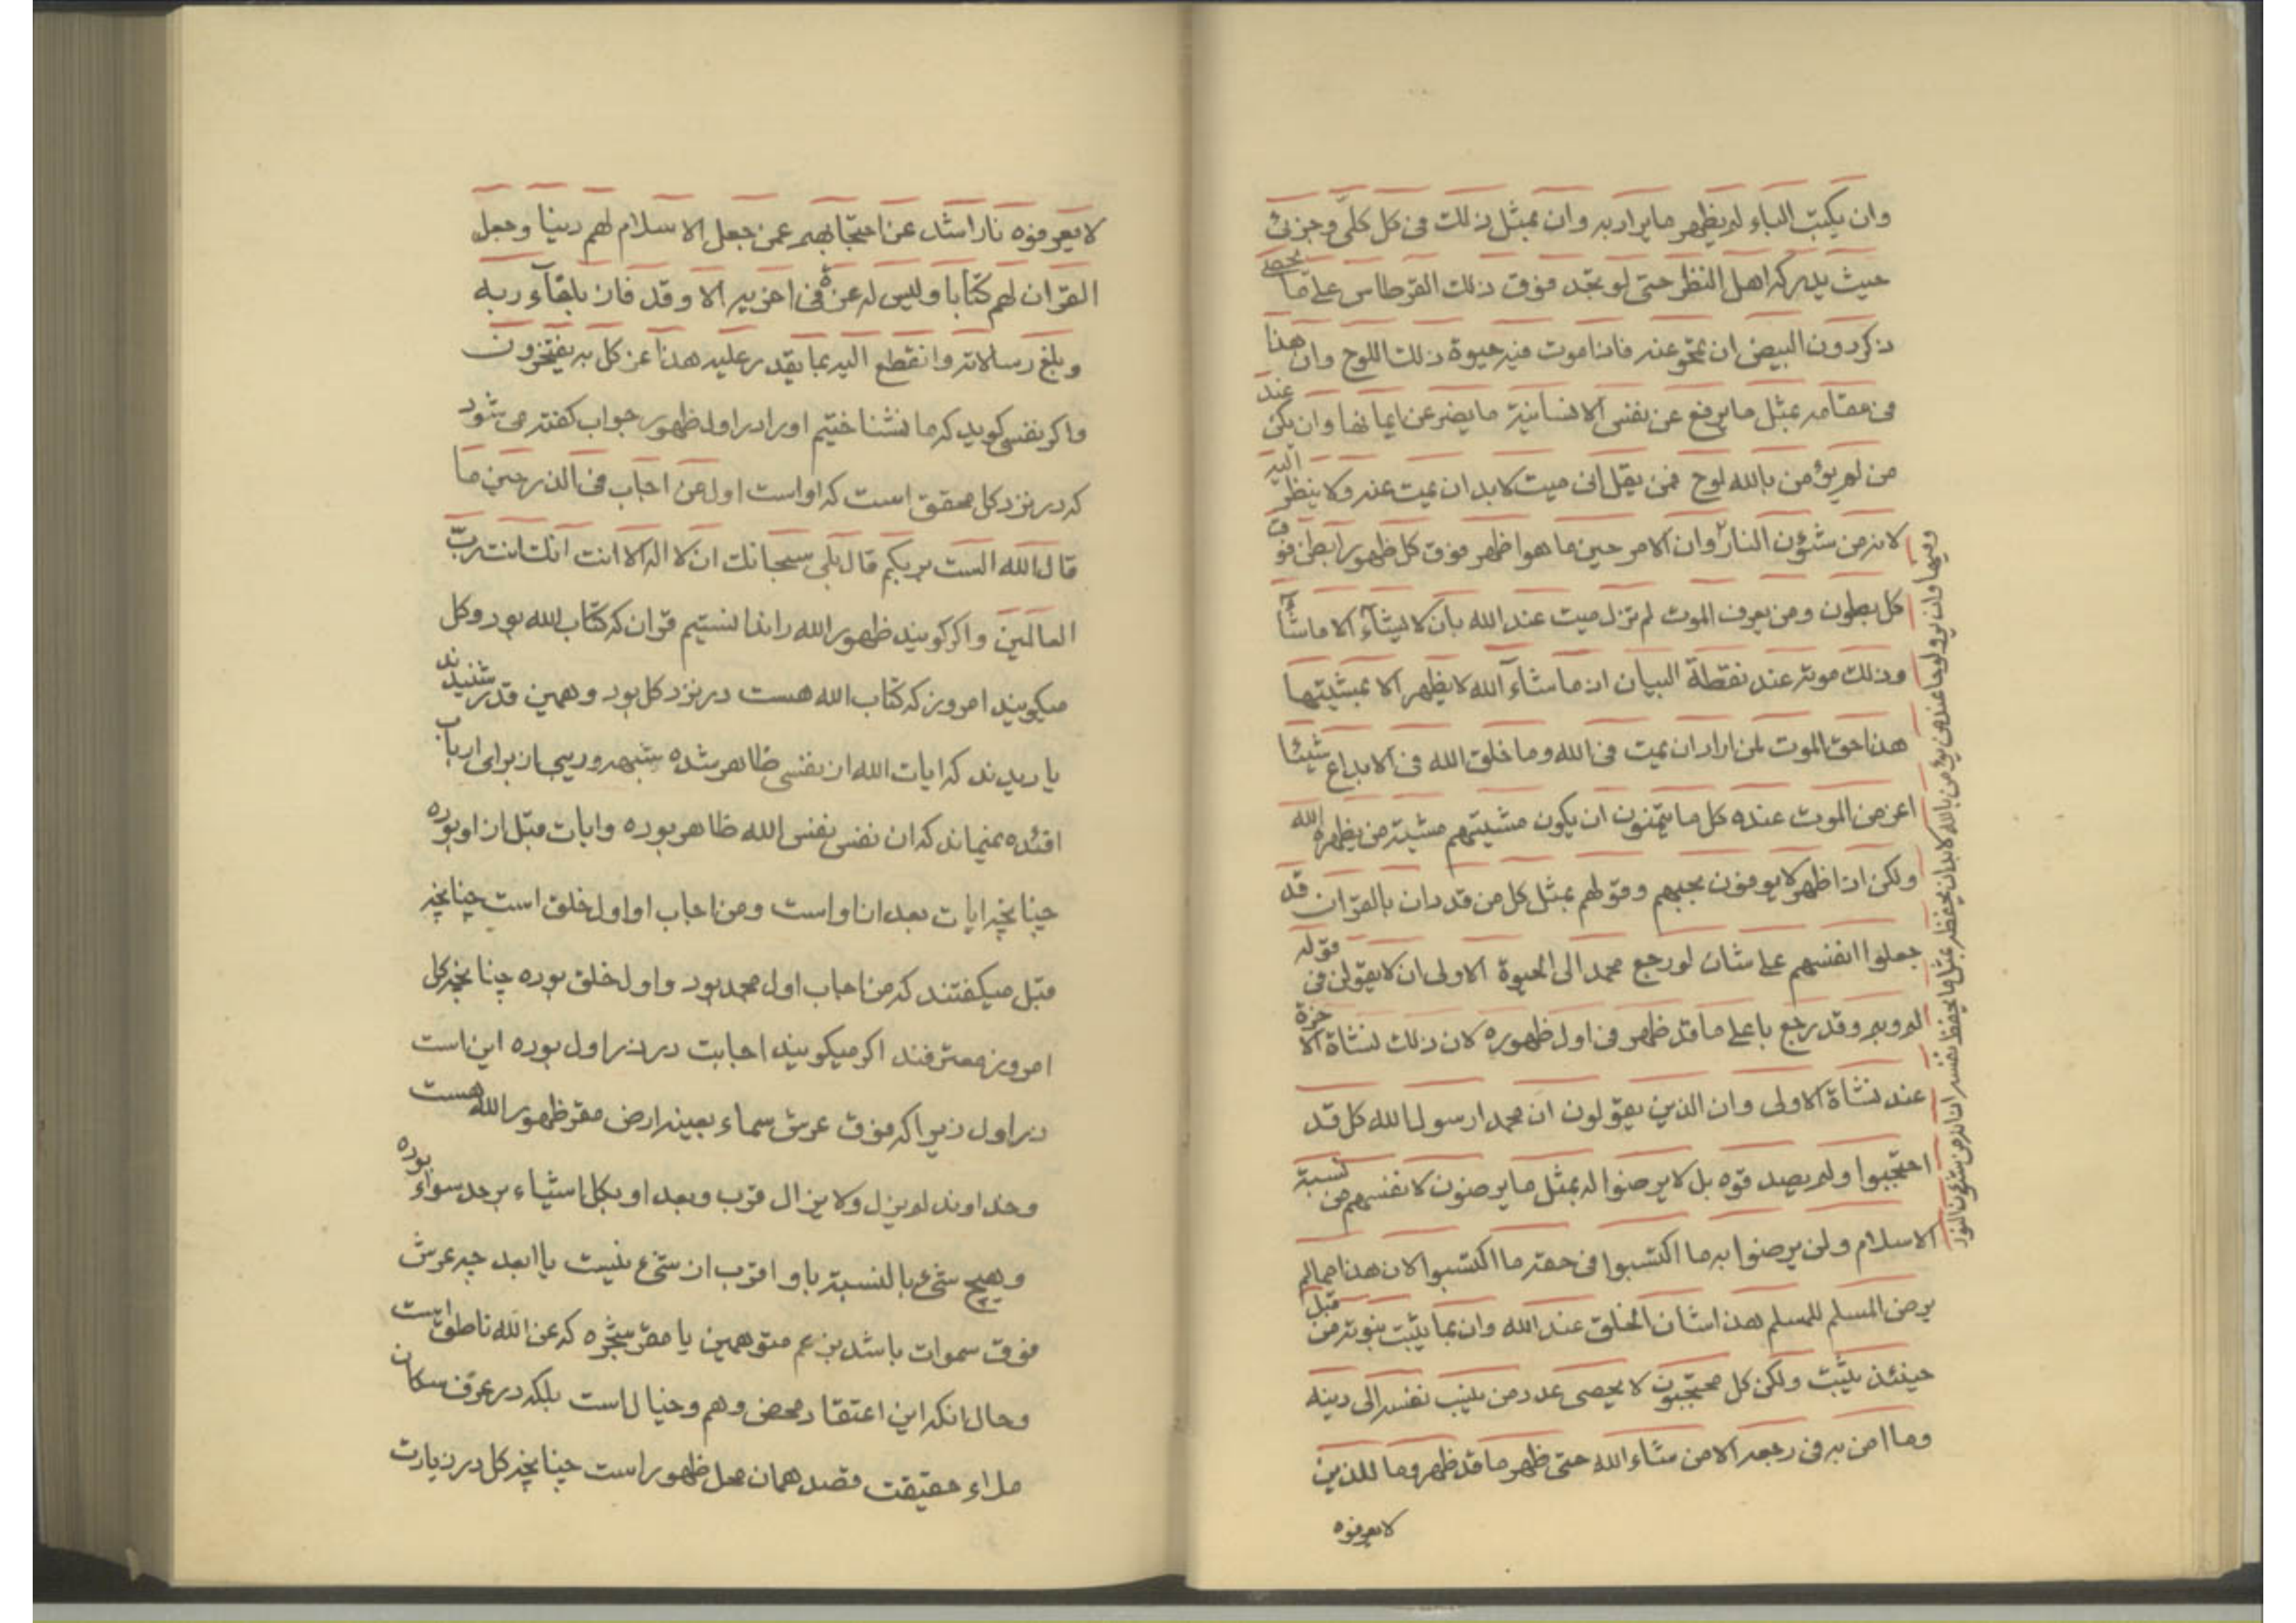 وان یکتب الباء لم یظهر ما یراد به وان بمثل ذلک فی کل کلی وجزئی
حیث یدرکه اهل النظر حتی لو تجد فوق ذلک القرطاس علی ما
ذکر دون البیض ان تمحو عنه فاذا موت فیه حیوة ذلک اللوح وان هذا
فی مقامه بمثل ما یرفع عن نفس الانسانیة ما یضر عن ایمانها وان یکن عند
من لم یؤمن بالله لوح فمن یقل انی میت لابد ان یمیت عنه ولا ینظر الیه
لانه من شئون النار وان الامر حین ما هو اظهر فوق کل ظهور ابطن فوق
کل بطون ومن یعرف الموت لم تزل میت عند الله بان لا یشآء الا ما شآء الله
وذلک موته عند نقطة البیان اذ ما شآء الله لا یظهر الا بمشیتها
هذا حق الموت لمن اراد ان یمیت فی الله وما خلق الله فی الابداع شیئا
اعز من الموت عنده کل ما یتمنون ان یکون مشیتهم مشیة من یظهره الله
ولکن اذا ظهر لا یوفون بحبهم وقولهم بمثل کل من قد دان بالقران قد
جعلوا انفسهم علی شان لو رجع محمد الی الحیوة الاولی ان لا یقولن فی قوله
لم وبم وقد رجع باعلی ما قد ظهر فی اول ظهوره لان ذلک نشاة الاخرة
عند نشاة الاولی وان الذین یقولون ان محمدا رسول الله کل قد
احتجبوا ولم یصدقوه بل لا یرضوا له بمثل ما یرضون لانفسهم من نسبة
الاسلام ولن یرضوا به ما اکتسبوا فی حقه ما اکتسبوا لان هذا مما لم
یرض المسلم للمسلم هذا شان الخلق عند الله وان بما یثبت نبوته من قبل
حینئذ یثبت ولکن کل محتجبون لا یحصی عدد من ینسب نفسه الی دینه
وما امن به فی رجعه الا من شاء الله حتی ظهر ما قد ظهر وما للذین
لا یعرفوه
وان یرو لوحا عند من یؤمن بالله لابد ان یحفظه بمثل ما یحفظ نفسه اذ انه من شئون النور
لا یعرفوه نار اشد عن احتجابهم عمن جعل الاسلام لهم دینا وجعل
القران لهم کتابا ولیس له عن فی اخریه الا وقد فاز بلقآء ربه
وبلغ رسالاته وانقطع الیه بما یقدر علیه هذا عز کل به یفتخرون
واکر نفسی کوید که ما نشناختیم او را در اول ظهور جواب کفته می شود
که در نزد کل محقق است که او است اول من اجاب فی الذر حین ما
قال الله الست بربکم قال بلی سبحانک ان لا اله الا انت انک انت رب
العالمین واکر کویند ظهور الله را ندانستیم قران که کتاب الله بود وکل
میکویند امروز که کتاب الله هست در نزد کل بود وهمین قدر شنیدند
یا دیدند که ایات الله از نفسی ظاهر شده شبهه وریبی از برای ارباب
افئده نمیماند که ان نفس نفس الله ظاهر بوده وایات قبل از او بوده
چنانچه ایات بعد از او است ومن اجاب او اول خلق است چنانچه
قبل میکفتند که من اجاب اول محمد بود واول خلق بوده چنانچه کل
امروز معترفند اکر میکویند اجابت در ذر اول بوده این است
ذر اول زیرا که فوق عرش سماء بعینه ارض مقر ظهور الله هست
وخداوند لم یزل ولا یزال قرب وبعد او بکل اشیاء بر حد سواء بوده
وهیچ شیء بالنسبة باو اقرب از شیء نیست یا ابعد چه عرش
فوق سموات باشد بزعم متوهمین یا مقر شجره که عن الله ناطق است
وحال انکه این اعتقاد محض وهم وخیال است بلکه در عرف سکان
ملاء حقیقت قصد همان محل ظهور است چنانچه کل در زیارت